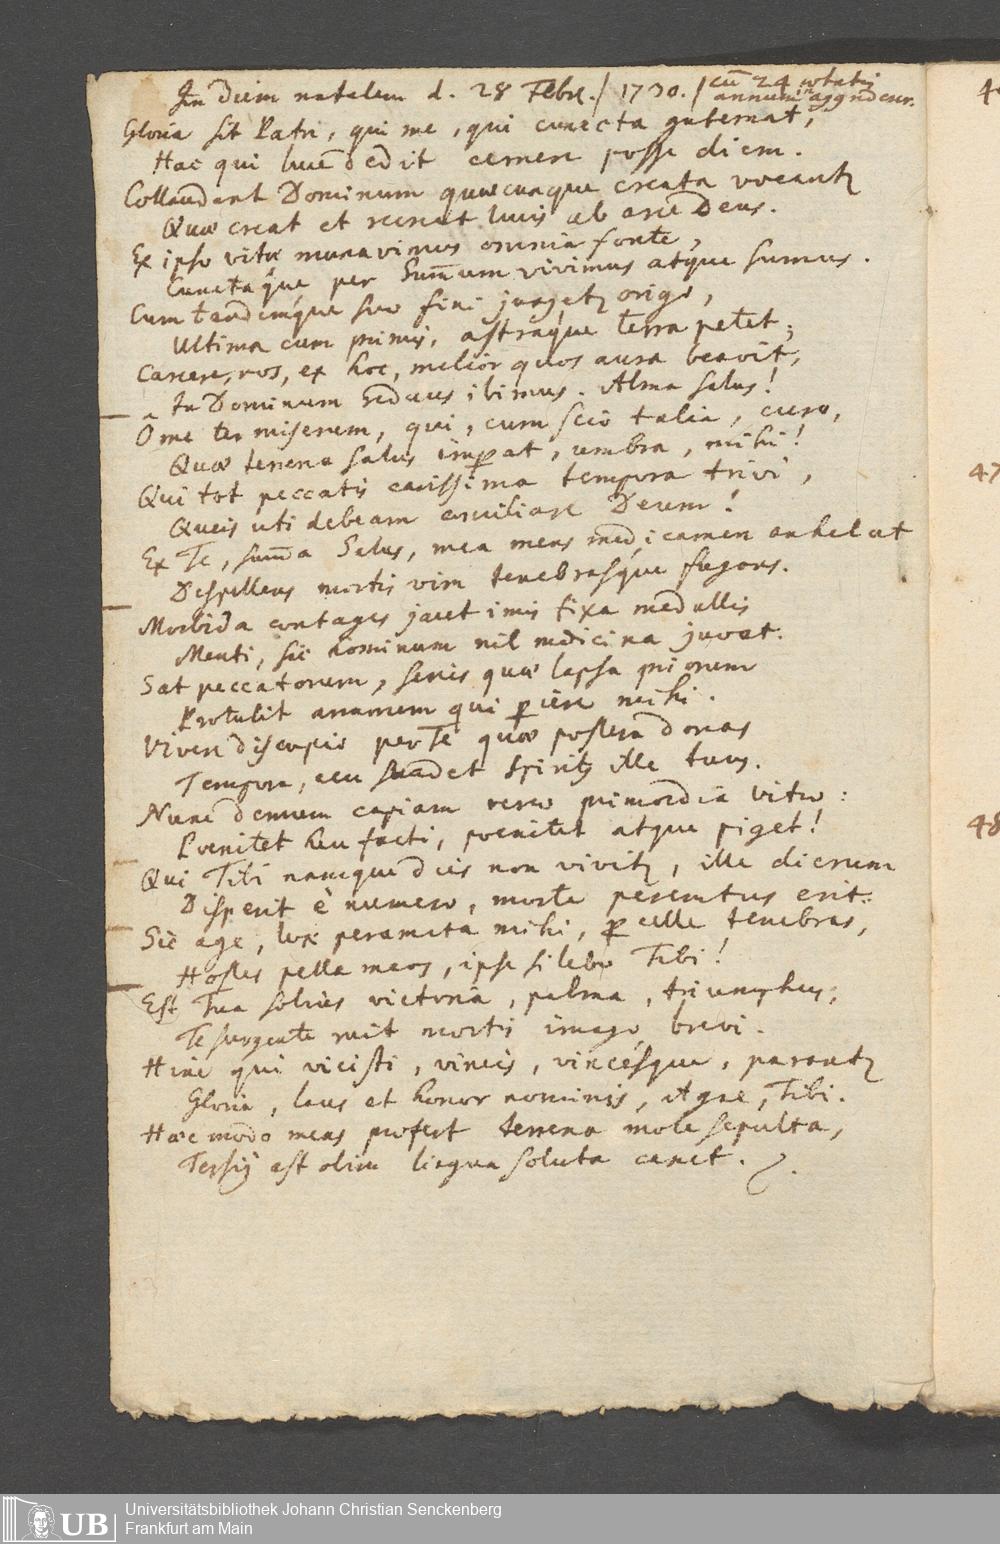 In diem natalem d. 28 Febr. / 1730. / cū 24 ætatis
annum aggrederer.
Gloria sit Patri, qui me, qui cuncta gubernat,
Hac qui luce dedit cernere posse diem.
Collaudent Dominum quæcunque creata vocantꝫ
Quæ creat et recreat lucis ab arce Deus.
Ex ipso vitæ munavimus omnia fonte,
Cunctaque, per Sum̄um vivimus atque sumus.
Cum tandemque suo fini jungetꝫ origo,
Ultima cum primis, astraque terra petet;
Carcere, nos, ex hoc, melior quos aura beavit,
In Dominum reduces ibimus. Alma salus!
O me ter miserum, qui, cum scio talia, curo,
Quæ terrena salus imꝑat, umbra, mihi!
Qui tot peccatis carissima tempora trivi,
Queis uti debeam conciliare Deum!
Ex Te, sum̄a Salus, mea mens medicamen anhelat
Dispellens mortis vim tenebrasque fugans.
Morbida contages jacet imis fixa medullis
Menti, sic hominum nil medicina juvat.
Sat peccatorum, series quæ lapsa priorum
Protulit annorum qui ꝑiere mihi.
Vivere discupio per Te quæ postera donas
Tempora, ceu suadet Spiritꝫ ille tuus.
Nunc demum capiam veræ primordia vitæ:
Poenitet heu facti, poenitet atque piget!
Qui Tibi namque dies non vivitꝫ, ille dierum
Disperit è numero, morte peremtus erit.
Sic age, lux peramata mihi, ꝓcelle tenebras,
Hostes pelle meos, ipse silebo Tibi!
Est Tua solius victoria, palma, triumphus;
Te surgente ruit mortis imago brevi.
Hinc qui vicisti, vincis, vincesque, parantꝫ
Gloria, laus et honor nominis, atque, Tibi.
Hæc modo mens profert terrena mole sepulta,
Tersius ast olim lingua soluta canet.
46
47
48
UB
Universitätsbibliothek Johann Christian Senckenberg
Frankfurt am Main